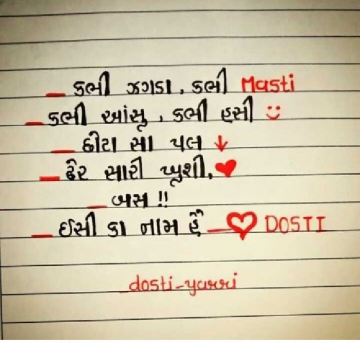 _ કભી ઝગડા, કભી Masti
_ કભી આંસુ, કભી હસી
_ છીટા સા પલ
_ ઢેર સારી ખુશી,
_ બસ !!
_ ઈસી કા નામ હૈં _ DOSTI
dosti-yarri